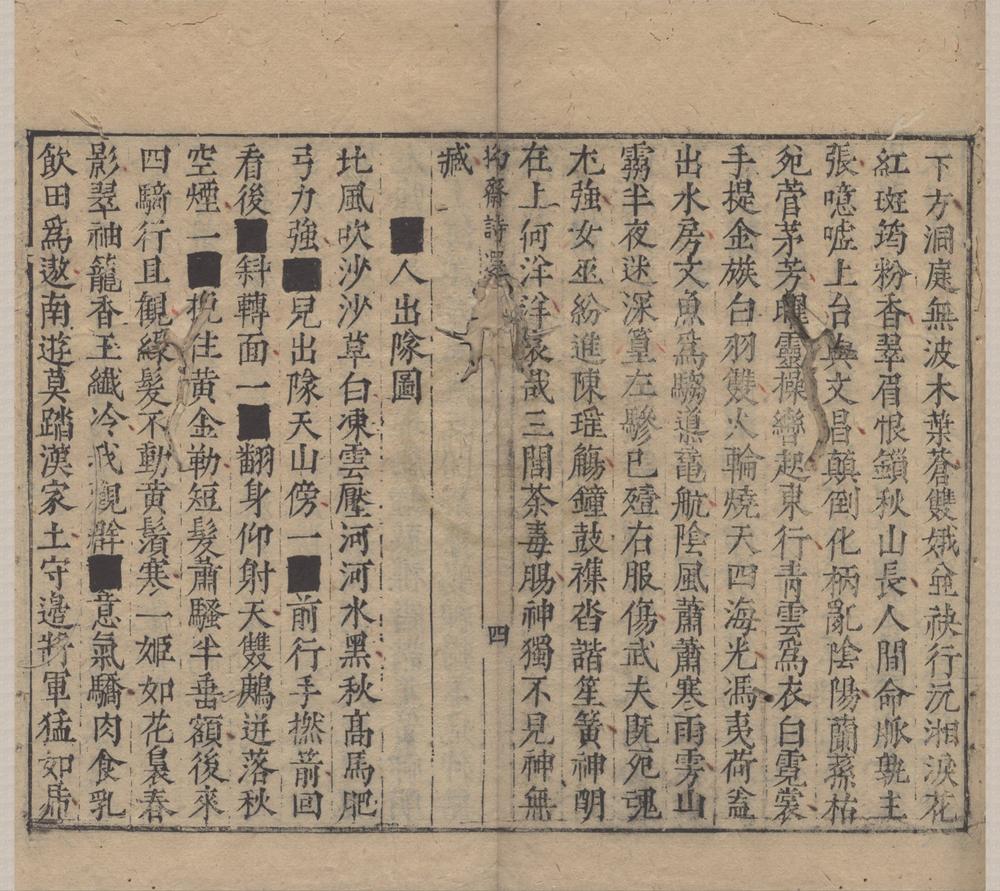 下方洞庭無波木葉蒼雙娥㑒袂行沅湘淚花
紅斑筠粉香翠眉恨鎖秋山長人間命脈孰主
張噫嘘上台與文昌顛倒化柄亂陰陽蘭蓀枯
死菅茅芳曜靈操轡起東行青雲爲衣白霓裳
手提金鏃白羽雙火輪燒天四海光馮夷荷盖
出水房文魚爲驂導黿航陰風蕭蕭寒雨雱山
靄半夜迷深篁左驂已殪右服傷武夫旣死魂
尤強女巫紛進陳瑶觴鐘鼓襍沓諧笙簧神明
在上何洋洋哀哉三閭荼毒腸神獨不見神無
臧
齋詩選
四
■人出隊圖
北風吹沙沙草白凍雲壓河河水黑秋高馬肥
弓力強■兒出隊天山傍一■前行手撚箭回
看後■斜轉面一■翻身仰射天雙鵰迸落秋
空煙一■挽住黃金勒短髮蕭騷半垂額後來
四騎行且觀綠髮不動黃鬚寒一姬如花裊春
影翠袖籠香玉纖冷我觀辟■意氣驕肉食乳
飲田爲遨南遊莫踏漢家土守邊將軍猛如虎